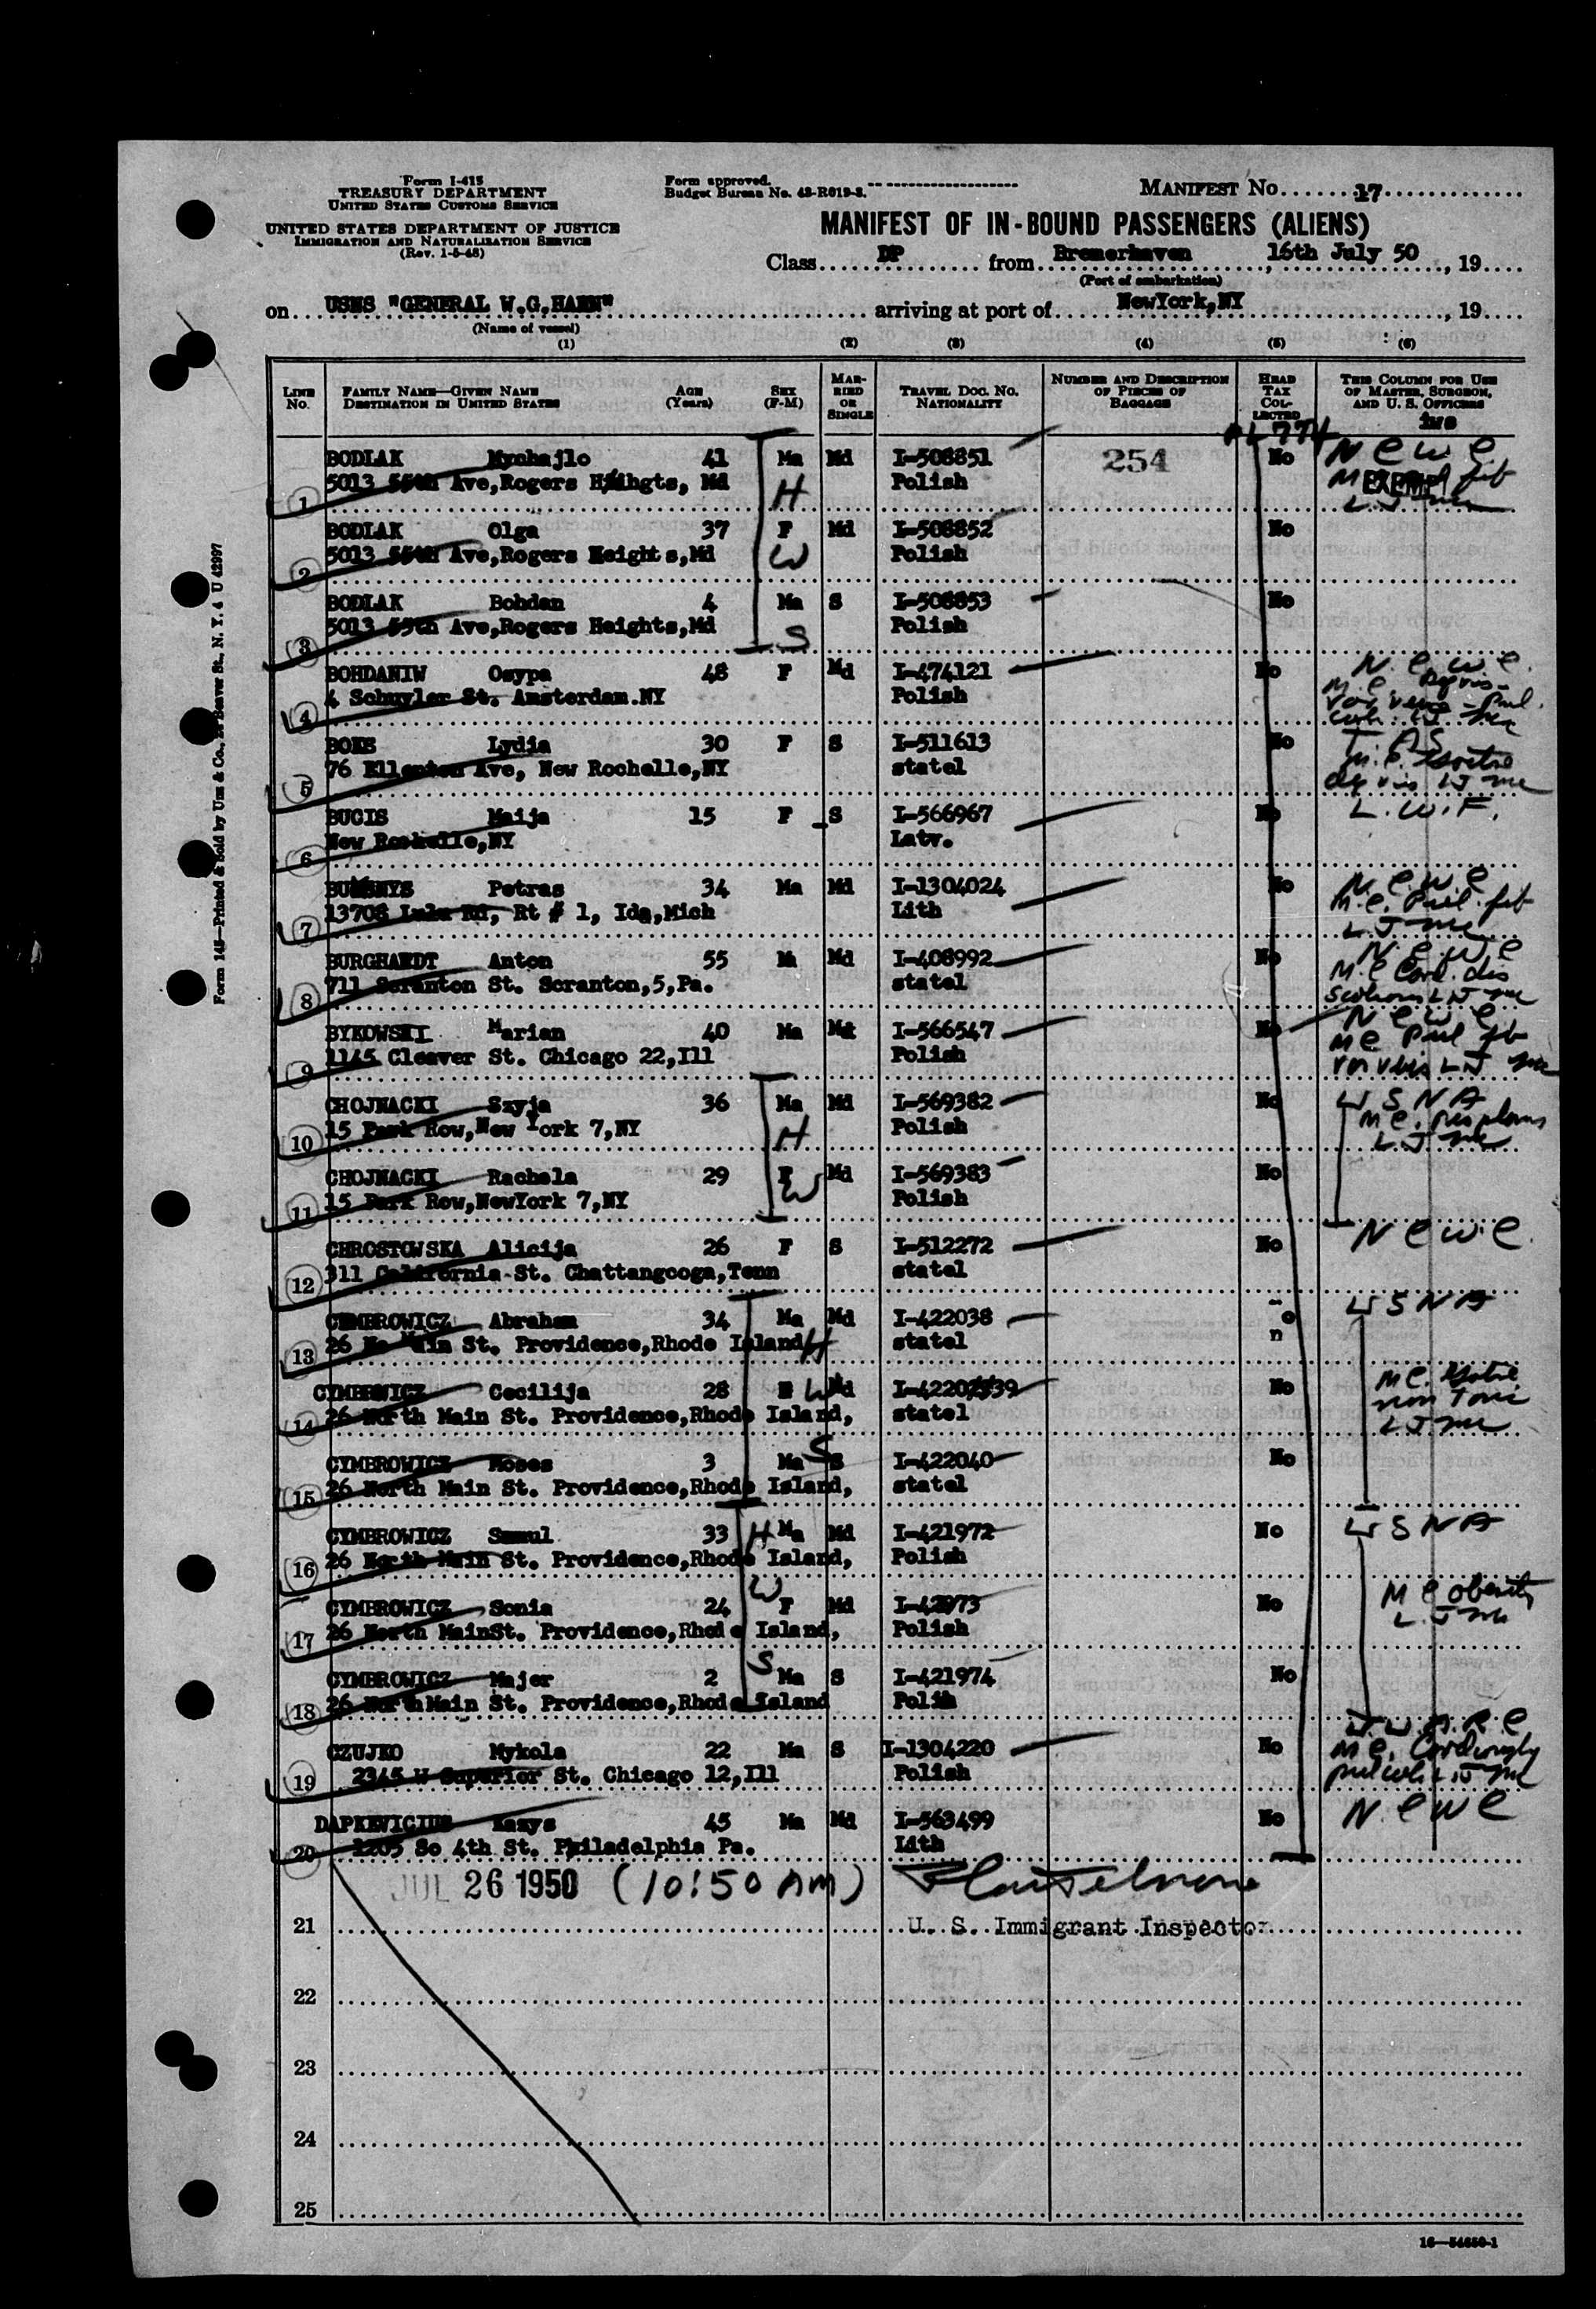 Form I-415
TREASURY DEPARTMENT
UNITED STATES CUSTOMS SERVICE
UNITED STATES DEPARTMENT OF JUSTICE
IMMIGRATION AND NATURALIZATION SERVICE
(Rev. 1-5-48)
Form approved.
Budget Bureau No. 43-R019-3.
MANIFEST No. 17
MANIFEST OF IN-BOUND PASSENGERS (ALIENS)
Class DP from Bremerhaven, 16th July 50, 19
(Port of embarkation)
on USNS "GENERAL W.G.HAAN" arriving at port of NewYork,NY, 19
(Name of vessel)
(1) (2) (3) (4) (5) (6)
LINE No. FAMILY NAME—GIVEN NAME DESTINATION IN UNITED STATES AGE (Years) SEX (F-M) MARRIED OR SINGLE TRAVEL DOC. NO. NATIONALITY NUMBER AND DESCRIPTION OF PIECES OF BAGGAGE HEAD TAX COLLECTED THIS COLUMN FOR USE OF MASTER, SURGEON, AND U. S. OFFICERS
BODLAK Mychajlo 41 Ma Md I-508851 254 No N e w e
1 5013 55th Ave,Rogers Heihgts, Md H Polish EXEMPT
BODLAK Olga 37 F Md I-508852 No
2 5013 55th Ave,Rogers Heights,Md W Polish
BODLAK Bohdan 4 Ma S I-508853 No
3 5013 55th Ave,Rogers Heights,Md S Polish
BOHDANIW Osypa 48 F Md I-474121 No N. e. w. e.
4 4 Schuyler St. Amsterdam.NY Polish
BOKS Lydia 30 F S I-511613 No
5 76 Ellenton Ave, New Rochelle,NY statel
BUCIS Maija 15 F S I-566967 No L. W. F.
6 New Rochelle,NY Latv.
Petras 34 Ma Md I-1304024 No N. e. w. e
7 13708 Lulu Rd, Rt # 1, Ida,Mich Lith
BURGHARDT Anton 55 M Md I-408992 No N e w e
8 711 Scranton St. Scranton,5,Pa. statel
BYKOWSKI Marian 40 Ma I-566547 No N e w e
9 1145 Cleaver St. Chicago 22,Ill Polish
CHOJNACKI Szyja 36 Ma Md I-569382 No U S N A
10 15 Park Row,New York 7,NY H Polish
CHOJNACKI Rachela 29 F Md I-569383 No
11 15 Park Row,NewYork 7,NY W Polish
CHROSTOWSKA Alicija 26 F S I-512272 No N e w e.
12 311 California St. Chattangcoga,Tenn statel
CEMBROWICZ Abraham 34 Ma Md I-422038 U S N A
13 26 No Main St. Providence,Rhode Island H statel
Cecilija 28 W Md No
14 26 North Main St. Providence,Rhode Island, statel
CYMBROWICZ Moses 3 Ma S S I-422040 No
15 26 North Main St. Providence,Rhode Island, statel
CYMBROWICZ Samul 33 H Ma Md I-421972 No U S N A
16 26 North Main St. Providence,Rhode Island, Polish
CYMBROWICZ Sonia 24 W F Md No M e obesity
17 26 North MainSt. Providence,Rhode Island, Polish
CYMBROWICZ Majer 2 S Ma S I-421974 No
18 26 North Main St. Providence,Rhode Island Polih
CZUJKO Mykola 22 Ma S I-1304220 No
19 2345 W Superior St. Chicago 12,Ill Polish
DAPKEVICIUS Kazys 45 Ma Md I-563499 No N e w e
20 1205 So 4th St. Philadelphia Pa. Lith
JUL 26 1950 (10:50 AM)
21 U. S. Immigrant Inspector
22
23
24
25
16—54650-1